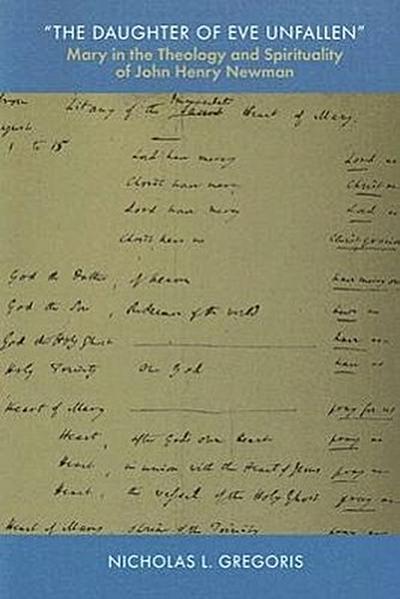 "THE DAUGHTER OF EVE UNFALLEN"
Mary in the Theology and Spirituality
of John Henry Newman
Litany of the Immaculate Heart of Mary.
1 to 15
Lord have mercy Lord
Christ have mercy Christ
Lord have mercy Lord
Christ hear us Christ
God the Father, of heaven have mercy on
God the Son, Redeemer of the world have
God the Holy Ghost have
Holy Trinity One God have
Heart of Mary pray for us
Heart, after God's own heart pray
Heart, in union with the Heart of Jesus pray
Heart, the vessel of the Holy Ghost pray
Heart of Mary shrine of the Trinity pray
NICHOLAS L. GREGORIS